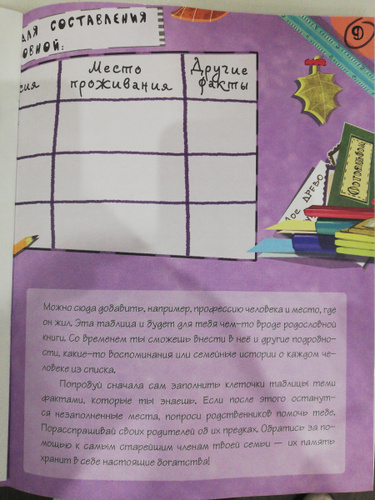 ДЛЯ СОСТАВЛЕНИЯ
ОВНОЙ:
9
сия
Место
проживания
Другие
факты
Фотоальбом
ОЕ ДРЕВО
Можно сюда добавить, например, профессию человека и место, где
он жил. Эта таблица и будет для тебя чем-то вроде родословной
книги. Со временем ты сможешь внести в неё и другие подробно-
сти, какие-то воспоминания или семейные истории о каждом че-
ловеке из списка.
Попробуй сначала сам заполнить клеточки таблицы теми
фактами, которые ты знаешь. Если после этого останут-
ся незаполненные места, попроси родственников помочь тебе.
Порасспрашивай своих родителей об их предках. Обратись за по-
мощью к самым старейшим членам твоей семьи — их память
хранит в себе настоящие богатства!